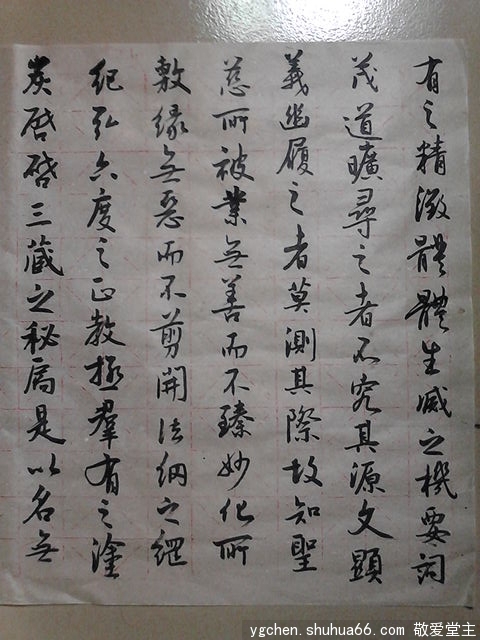 有之精微體體生滅之機要詞
茂道曠尋之者不究其源文顯
義幽履之者莫測其際故知聖
慈所被業無善而不臻妙化所
敷緣無惡而不剪開法網之綱
紀弘六度之正教拯羣有之塗
炭啓啓三藏之秘扃是以名無
ygchen.shuhua66.com 敬爱堂主